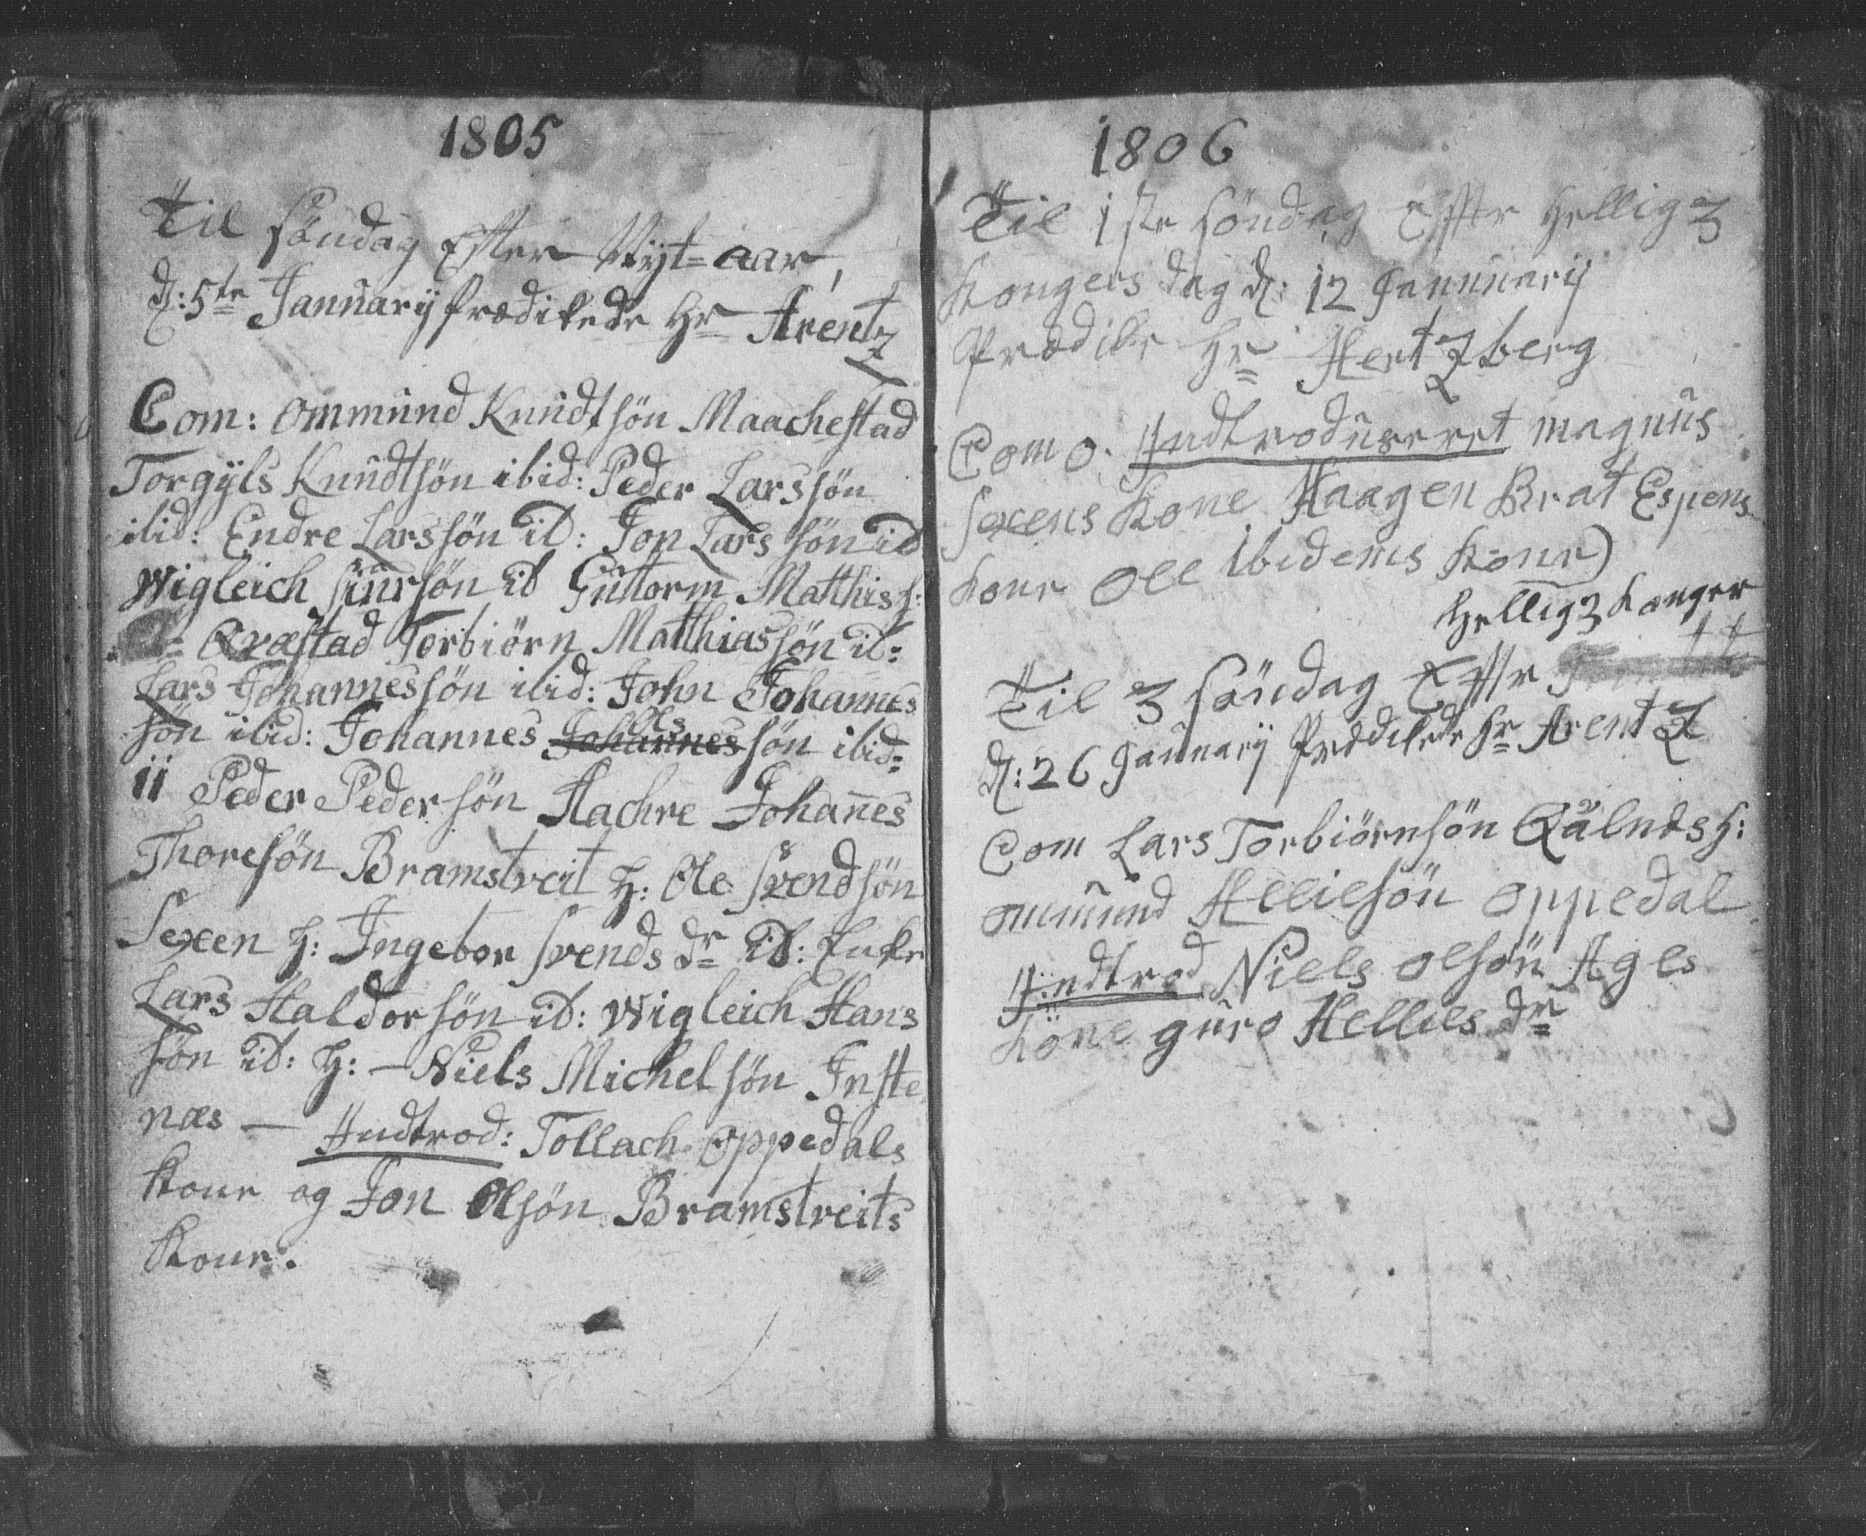 1805
Til Söndag Efter Nÿt=aar,
d: 5te Januarÿ prædikede Hr Arentz
Com: Ommund Knudtsön Maachestad
Torgÿls Knudtsön ibid: Peder Larssön
ibid: Endre Larssön id: Jon Larssön id
Wigleich siursön id Guttorm Matthiss:
Qvæstad Torbiörn Matthiassön id:
Lars Johannessön ibid: John Johannes
sön ibid: Johannes Johannessön ibid=
ii Peder Pedersön Aachre Johanes
Thoresön Bramstreit H: Ole Svendsön
Sexen H: Ingebor Svends dr id: Enke
Lars Haldorsön id: Wigleich Hans
sön id: H: — Niels Michelsön Inste
næs — Indtrod: Tollach Oppedals
Kone og Jon Olsön Bramstreits
Kone.
1806
Til 1ste Söndag Efftr Hellig 3
Kongers dag d: 12 Januuarÿ
Prædike Hr Hertzberg
Com 0. Indtroduseret magnus
Sexens Kone Haagen Brat Espens
Kone Ole Ibidems Kone)
Hellig 3 Konger
Til 3 Söndag Efftr
d: 26 Januarÿ Prædikede Hr Arentz
Com Lars Torbiörnsön Qualnds H:
ommund Helliesön oppedal
Indtrod Niels olsön Ages
Kone guro Hellies dr